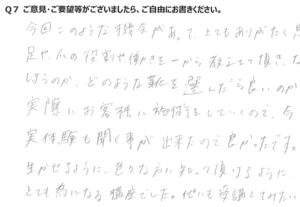 Q7 ご意見・ご要望等がございましたら、ご自由にお書きください。
今回このような機会があって、とてもありがたく
足や、爪の役割や働きを一から教えて頂き、
しまうのか、どのような靴を選んだら良いのか
実際にお客様に施術をしていくので、今
実体験も聞く事が出来たので良かったです。
生かせるように、色々な方に知って頂けるように、
とても為になる講座でした。他にも受講してみたい